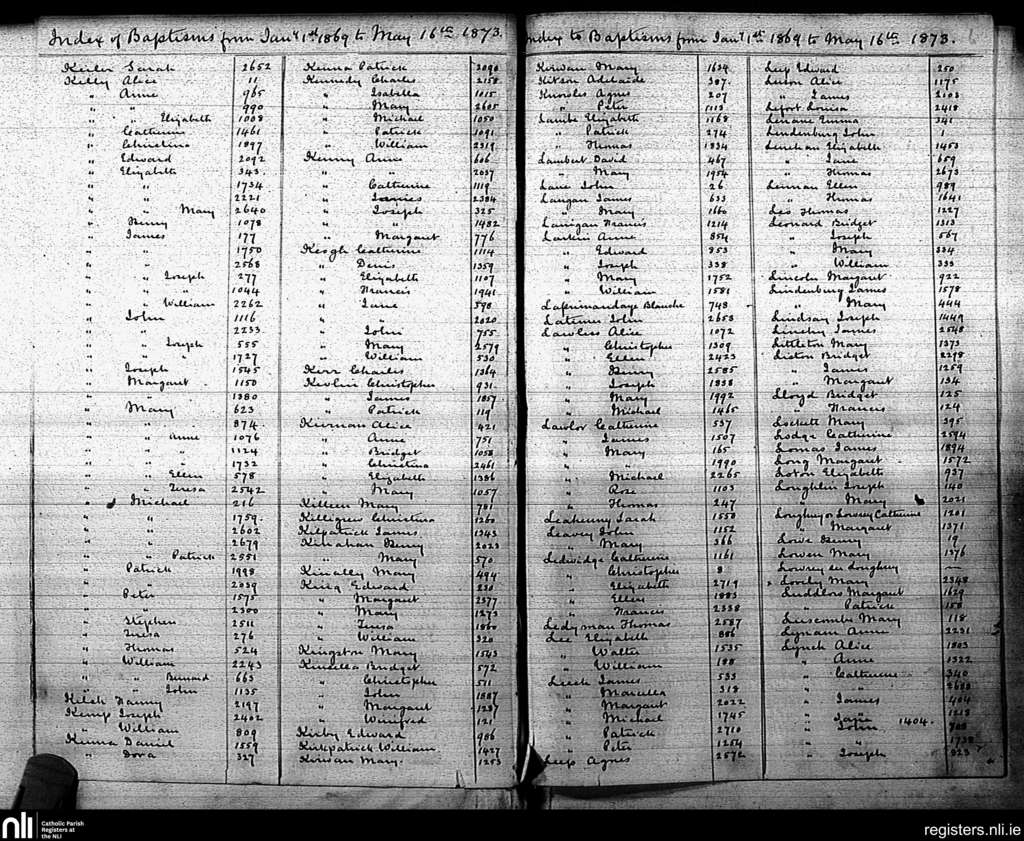 Index of Baptisms from Jany 1st 1869 to May 16th 1873.
Keeler Sarah 2652
Kelly Alice 11
" Anne 965
" " 990
" " Elizabeth 1008
" Catherine 1461
" Christina 1897
" Edward 2092
" Elizabeth 343
" " 1734
" " 2221
" " Mary 2640
" Henry 1078
" James 177
" " 1750
" " 2568
" " Joseph 277
" " " 1044
" " William 2262
" John 1116
" " 2233
" " Joseph 555
" " " 1727
" Joseph 1545
" Margaret 1150
" " 1380
" Mary 623
" " 874
" " Anne 1076
" " " 1124
" " " 1732
" " Ellen 578
" " Teresa 2542
" Michael 216
" " 1759
" " 2602
" " 2679
" " Patrick 2551
" Patrick 1998
" " 2039
" Peter 1575
" " 2300
" Stephen 2511
" Teresa 276
" Thomas 524
" William 2243
" " Bernard 663
" " John 1135
Kelch Fanny 2197
Kemp Joseph 2402
" William 809
Kenna Daniel 1559
" Dora 327
Kenna Patrick 2090
Kennedy Charles 2158
" Isabella 1015
" Mary 2605
" Michael 1050
" Patrick 1091
" William 2319
Kenny Anne 606
" " 2037
" Catherine 1119
" James 2384
" Joseph 325
" " 1482
" Margaret 776
Keogh Catherine 1114
" Denis 1359
" Elizabeth 1107
" Francis 1941
" Jane 598
" " 2020
" John 755
" Mary 2579
" William 530
Kerr Charles 1364
Kevlin Christopher 931
" James 1857
" Patrick 119
Kiernan Alice 421
" Anne 751
" Bridget 1058
" Christina 2461
" Elizabeth 1386
" Mary 1057
Killeen Mary 781
Killigrew Christina 1260
Kilpatrick James 1343
Kinahan Henry 2023
" Mary 570
Kinealey Mary 494
King Edward 230
" Margaret 2377
" Mary 1273
" Teresa 1860
" William 320
Kingston Mary 1543
Kinsella Bridget 572
" Christopher 511
" John 1887
" Margaret 1237
" Winifred 121
Kirby Edward 986
Kirkpatrick William 1427
Kirwan Mary 1253
Index to Baptisms from Jany 1st 1869 to May 16th 1873.
Kirwan Mary 1634
Kitson Adelaide 387
Knowles Agnes 207
" Peter 1113
Lambe Elizabeth 1168
" Patrick 274
" Thomas 1834
Lambert David 467
" Mary 1954
Lane John 26
Langan James 633
" Mary 1660
Lanigan Francis 1214
Larkin Anne 854
" Edward 953
" Joseph 338
" Mary 1752
" William 1581
Laferimandaye Blanche 748
Latimer John 2653
Lawless Alice 1072
" Christopher 1309
" Ellen 2423
" Henry 2585
" Joseph 1838
" Mary 1992
" Michael 1465
Lawlor Catherine 537
" James 1507
" Mary 165
" " 1990
" Michael 2265
" Rose 1103
" Thomas 247
Leahenny Sarah 1550
Leavey John 1152
" Mary 366
Ledwidge Catherine 1161
" Christopher 8
" Elizabeth 2719
" Ellen 1883
" Francis 2338
Ledyman Thomas 2587
Lee Elizabeth 886
" Walter 1535
" William 188
Leech James 533
" Marcella 318
" Margaret 2022
" Michael 1745
" Patrick 2710
" Peter 1254
Leep Agnes 2572
Leep Edward 250
Leeson Alice 1175
" James 2103
Lefort Louisa 2418
Lenane Emma 341
Lendenburg John 1
Lenehan Elizabeth 1453
" Jane 659
" Thomas 2673
Lennan Ellen 989
" Thomas 1641
Leo Thomas 1227
Leonard Bridget 1313
" Joseph 567
" Mary 334
" William 333
Lincoln Margaret 922
Lindenburg James 1578
" Mary 444
Lindsay Joseph 1449
Linehy James 2548
Littleton Mary 1373
Liston Bridget 2298
" James 1259
" Margaret 134
Lloyd Bridget 125
" Francis 124
Lockett Mary 395
Lodge Catherine 2594
Lomas James 1894
Long Margaret 1572
Loton Elizabeth 937
Loughlin Joseph 140
" Mary 2021
Loughrey or Lowrey Catherine 1201
" Margaret 1371
Lowe Henry 19
Lowen Mary 1376
Lowrey see Loughrey —
x Loorby Mary 2348
Luddlow Margaret 1629
" Patrick 158
Luscombe Mary 118
Lynam Anne 2231
Lynch Alice 1803
" Anne 1322
" Catherine 340
" " 2683
" James 404
" " 1213
" Jane 1404.
" John 708
" " 1738
" Joseph 323
nli
Catholic Parish
Registers at
the NLI
registers.nli.ie